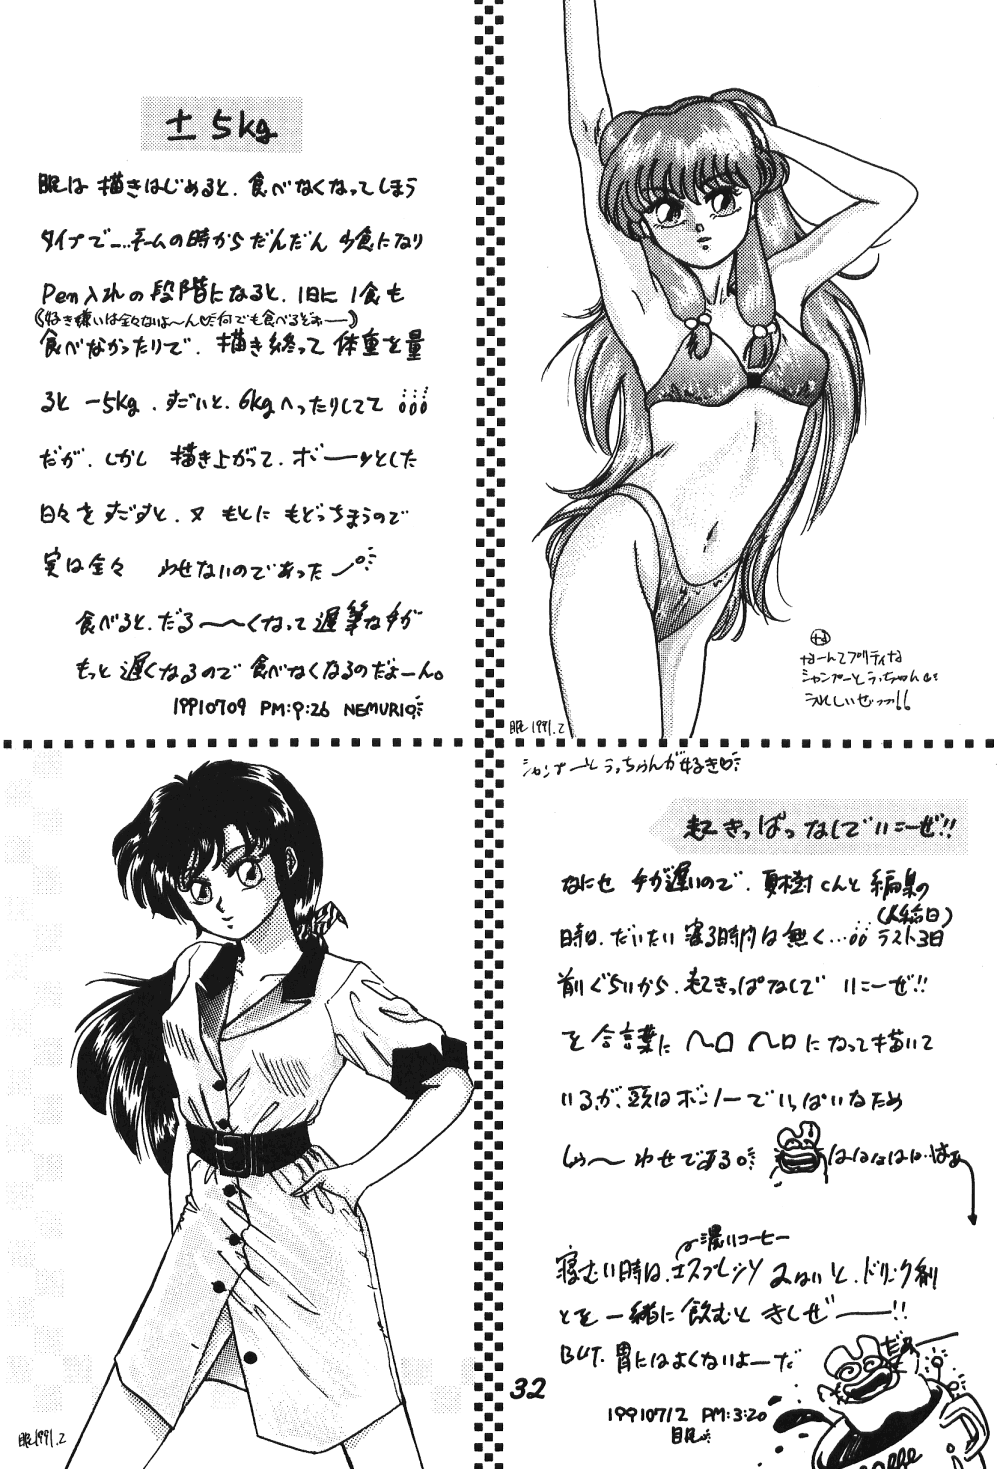 ± 5kg
眠は 描きはじめると、食べなくなってしまう
タイプで…ネームの時からだんだん 少食になり
Pen入れの段階になると、1日に 1食も
(好き嫌いは全々ないよ〜ん♡何でも食べるどぉー)
食べなかったりで、描き終って 体重を量
ると −5kg、すごいと、6kgへったりしてて
だが、しかし 描き上がって、ボーッとした
日々を すごすと、又 もとに もどっちまうので
実は全々 やせないのであった
食べると、だる〜〜くなって 遅筆な手が
もっと 遅くなるので 食べなくなるのだよーん。
19910709 PM:9:26 NEMURI
眠 1991.2
なーんてプリティな
シャンプーとうっちゃん
うれしいぜっっ!!
シャンプーとうっちゃんが好き♡
起きっぱっなしでいこーぜ!!
なにせ 手が遅いので、夏樹くんと 編集の
(人给日)
時は、だいたい 寝る時間は無く… ラスト3日
前ぐらいから、起きっぱなしで いこーぜ!!
を 合言葉に ヘロ ヘロになって描いて
いるが、頭はボンノーでいっぱいなため
しゅ〜わせである。
はははははは…はぁ
濃いコーヒー
寝むい時は、エスプレッソ みないと、ドリンク剤
とを 一緒に 飲むと きしぜ——!!
BUT. 胃にはよくないよーだ
19910712 PM:3:20
眠
32
眠 1991.2